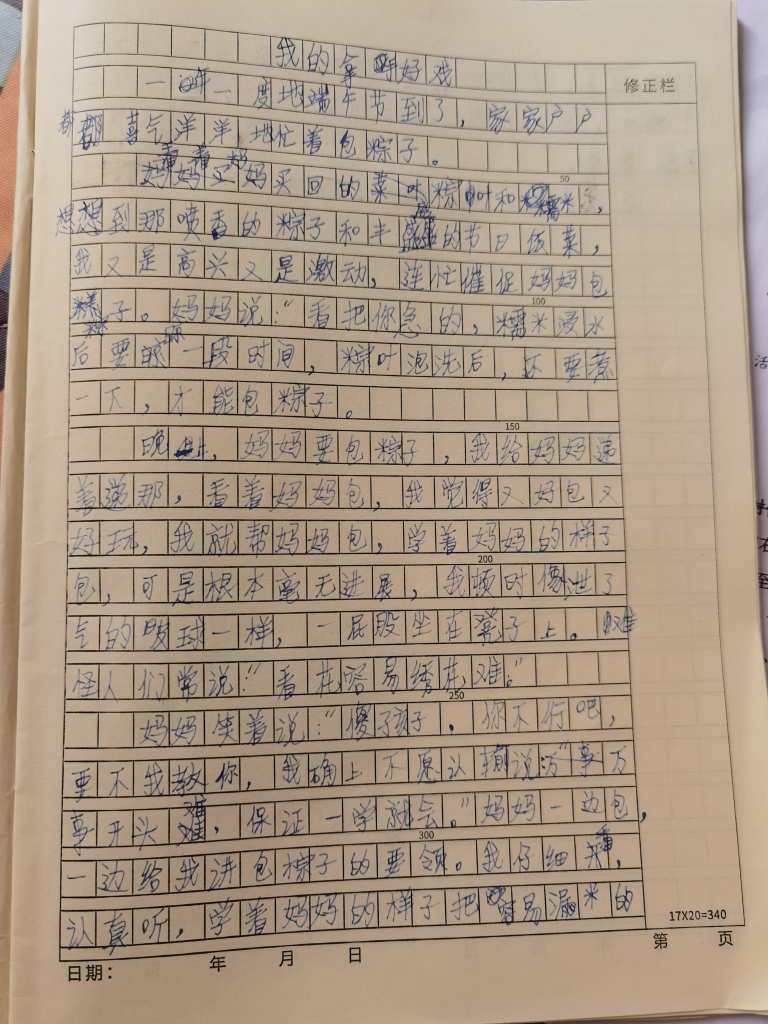 我的拿好戏
修正栏
一年一度地端午节到了，家家户户
都喜气洋洋地忙着包粽子。
看着妈妈买回的粽叶和糯米，
50
想到那喷香的粽子和丰盛的节日饭菜，
我又是高兴又是激动，连忙催促妈妈包
粽子。妈妈说：“看把你急的，糯米浸水
100
后要晾一段时间，粽叶泡洗后，还要煮
一下，才能包粽子。
晚上，妈妈要包粽子，我给妈妈递
150
着递那，看着妈妈包，我觉得又好包又
好玩，我就帮妈妈包，学着妈妈的样子
包，可是根本毫无进展，我顿时像泄了
200
气的球一样，一屁股坐在凳子上。难
怪人们常说：“看花容易绣花难。”
妈妈笑着说：“傻孩子，你不行吧，
250
要不我教你，我确上不愿认输说：“万
事开头难，保证一学就会。”妈妈一边包，
一边给我讲包粽子的要领。我仔细看，
300
认真听，学着妈妈的样子把易漏米的
17X20=340
日期： 年 月 日
第 页